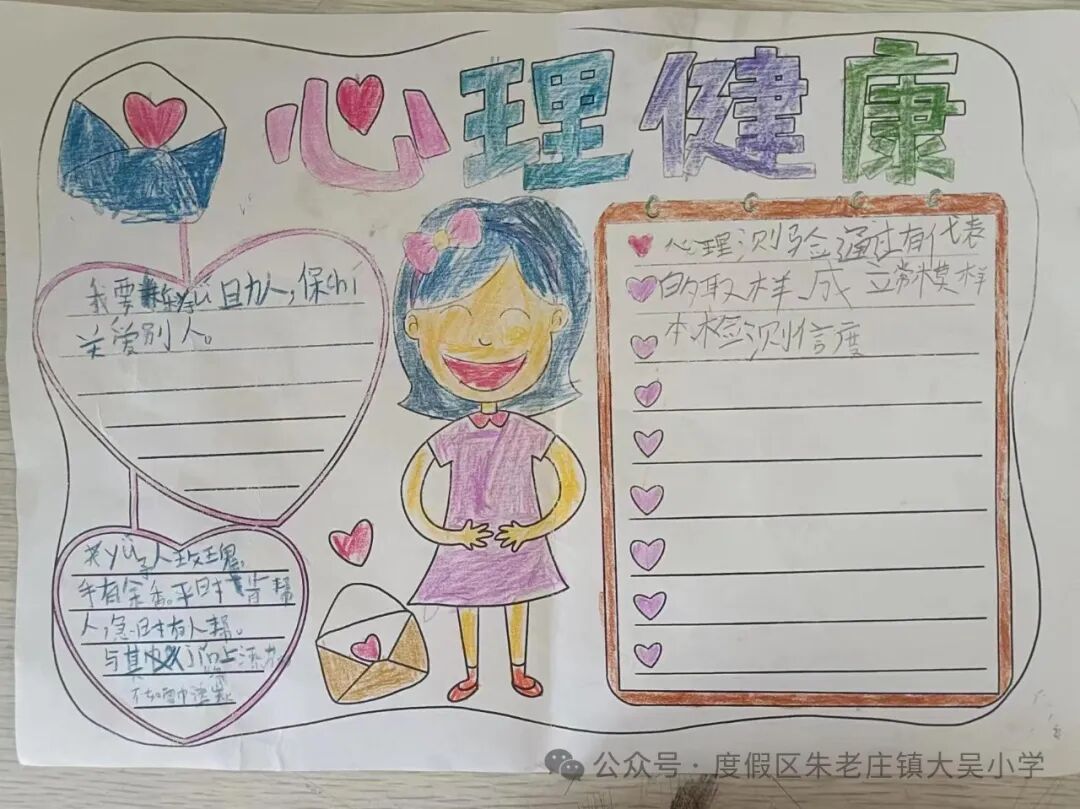 心理健康
我要 lè yú 自助人,保chí
关爱别人。
关yú子人玫瑰,
手有余香。平日才肯帮
人,急时有人帮。
与其
不如雪中送炭
心理测验通过有代表
的取样成立常模样
本检测信度
公众号·度假区朱老庄镇大吴小学